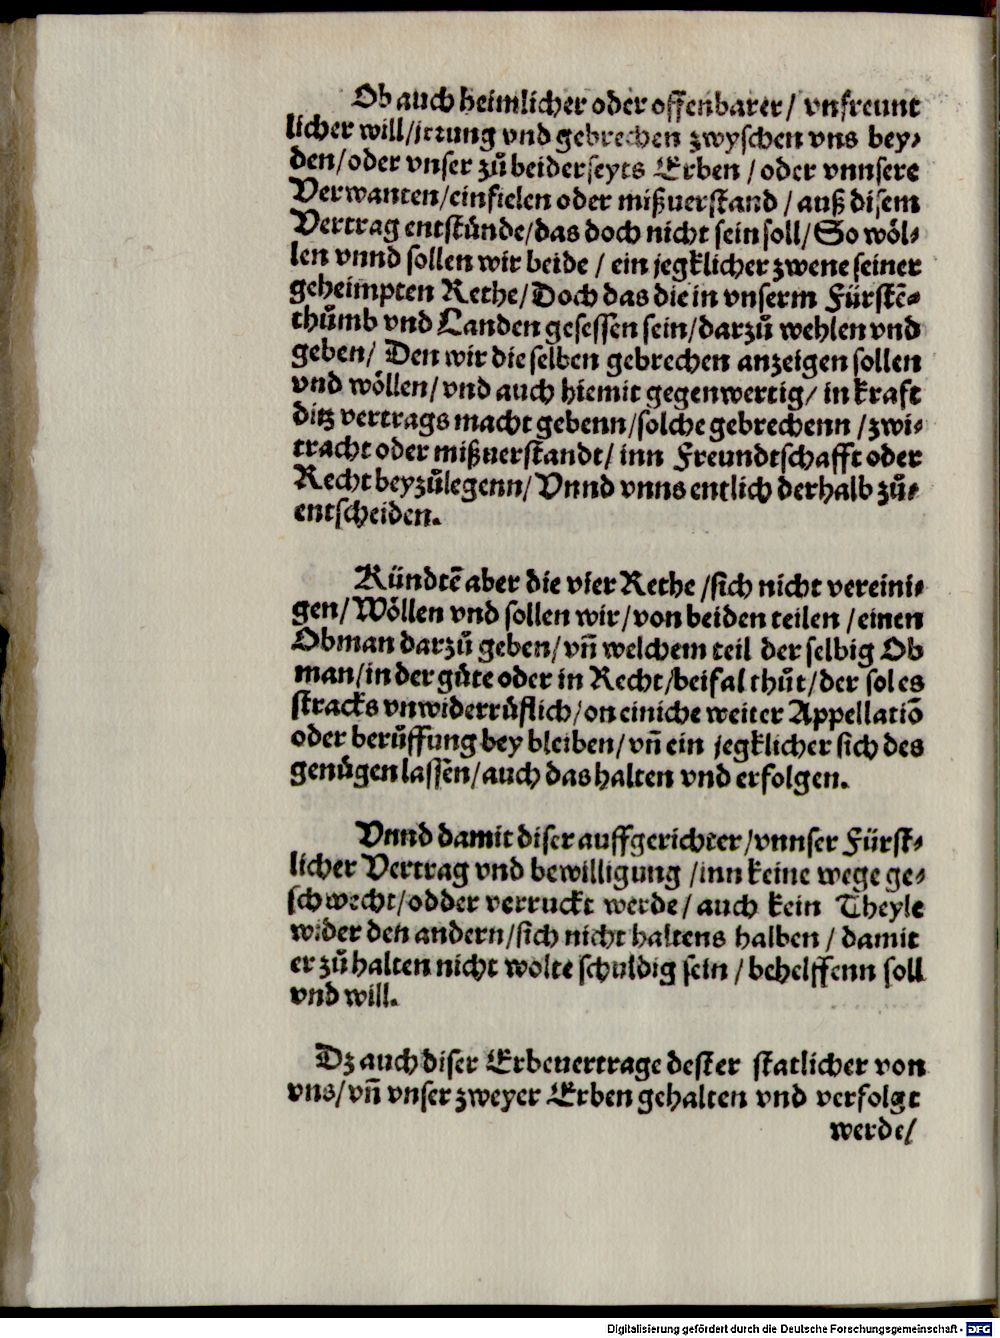 Ob auch heimlicher oder offenbarer / vnfreunt
licher will/irrung vnd gebrechen zwyschen vns bey⸗
den/oder vnser zů beiderseyts Erben / oder vnnsere
Verwanten/einfielen oder mißuerstand / auß disem
Vertrag entstünde/das doch nicht sein soll/ So wöl⸗
len vnnd sollen wir beide / ein jegklicher zwene seiner
geheimpten Rethe/Doch das die in vnserm Fürstē⸗
thůmb vnd Landen gesessen sein/darzů wehlen vnd
geben/ Den wir die selben gebrechen anzeigen sollen
vnd wöllen/vnd auch hiemit gegenwertig/ in kraft
ditz vertrags macht gebenn/solche gebrechenn /zwi⸗
tracht oder mißuerstandt/ inn Freundtschafft oder
Recht beyzůlegenn/ Vnnd vnns entlich derhalb zů⸗
entscheiden.
Kündtē aber die vier Rethe /sich nicht vereini⸗
gen/ Wöllen vnd sollen wir/von beiden teilen /einen
Obman darzů geben/vn̄ welchem teil der selbig Ob
man/in der gůte oder in Recht/beifal thůt/der sol es
stracks vnwiderrůflich/on einiche weiter Appellatiō
oder berůffung bey bleiben/vn̄ ein jegklicher sich des
genůgen lassen/auch das halten vnd erfolgen.
Vnnd damit diser auffgerichter/vnnser Fürst⸗
licher Vertrag vnd bewilligung /inn keine wege ge⸗
schwecht/odder verruckt werde/ auch kein Theyle
wider den andern/sich nicht haltens halben / damit
er zů halten nicht wolte schuldig sein / behelffenn soll
vnd will.
Dz auch diser Erbeuertrage dester statlicher von
vns/vn̄ vnser zweyer Erben gehalten vnd verfolgt
werde/
Digitalisierung gefördert durch die Deutsche Forschungsgemeinschaft - DFG